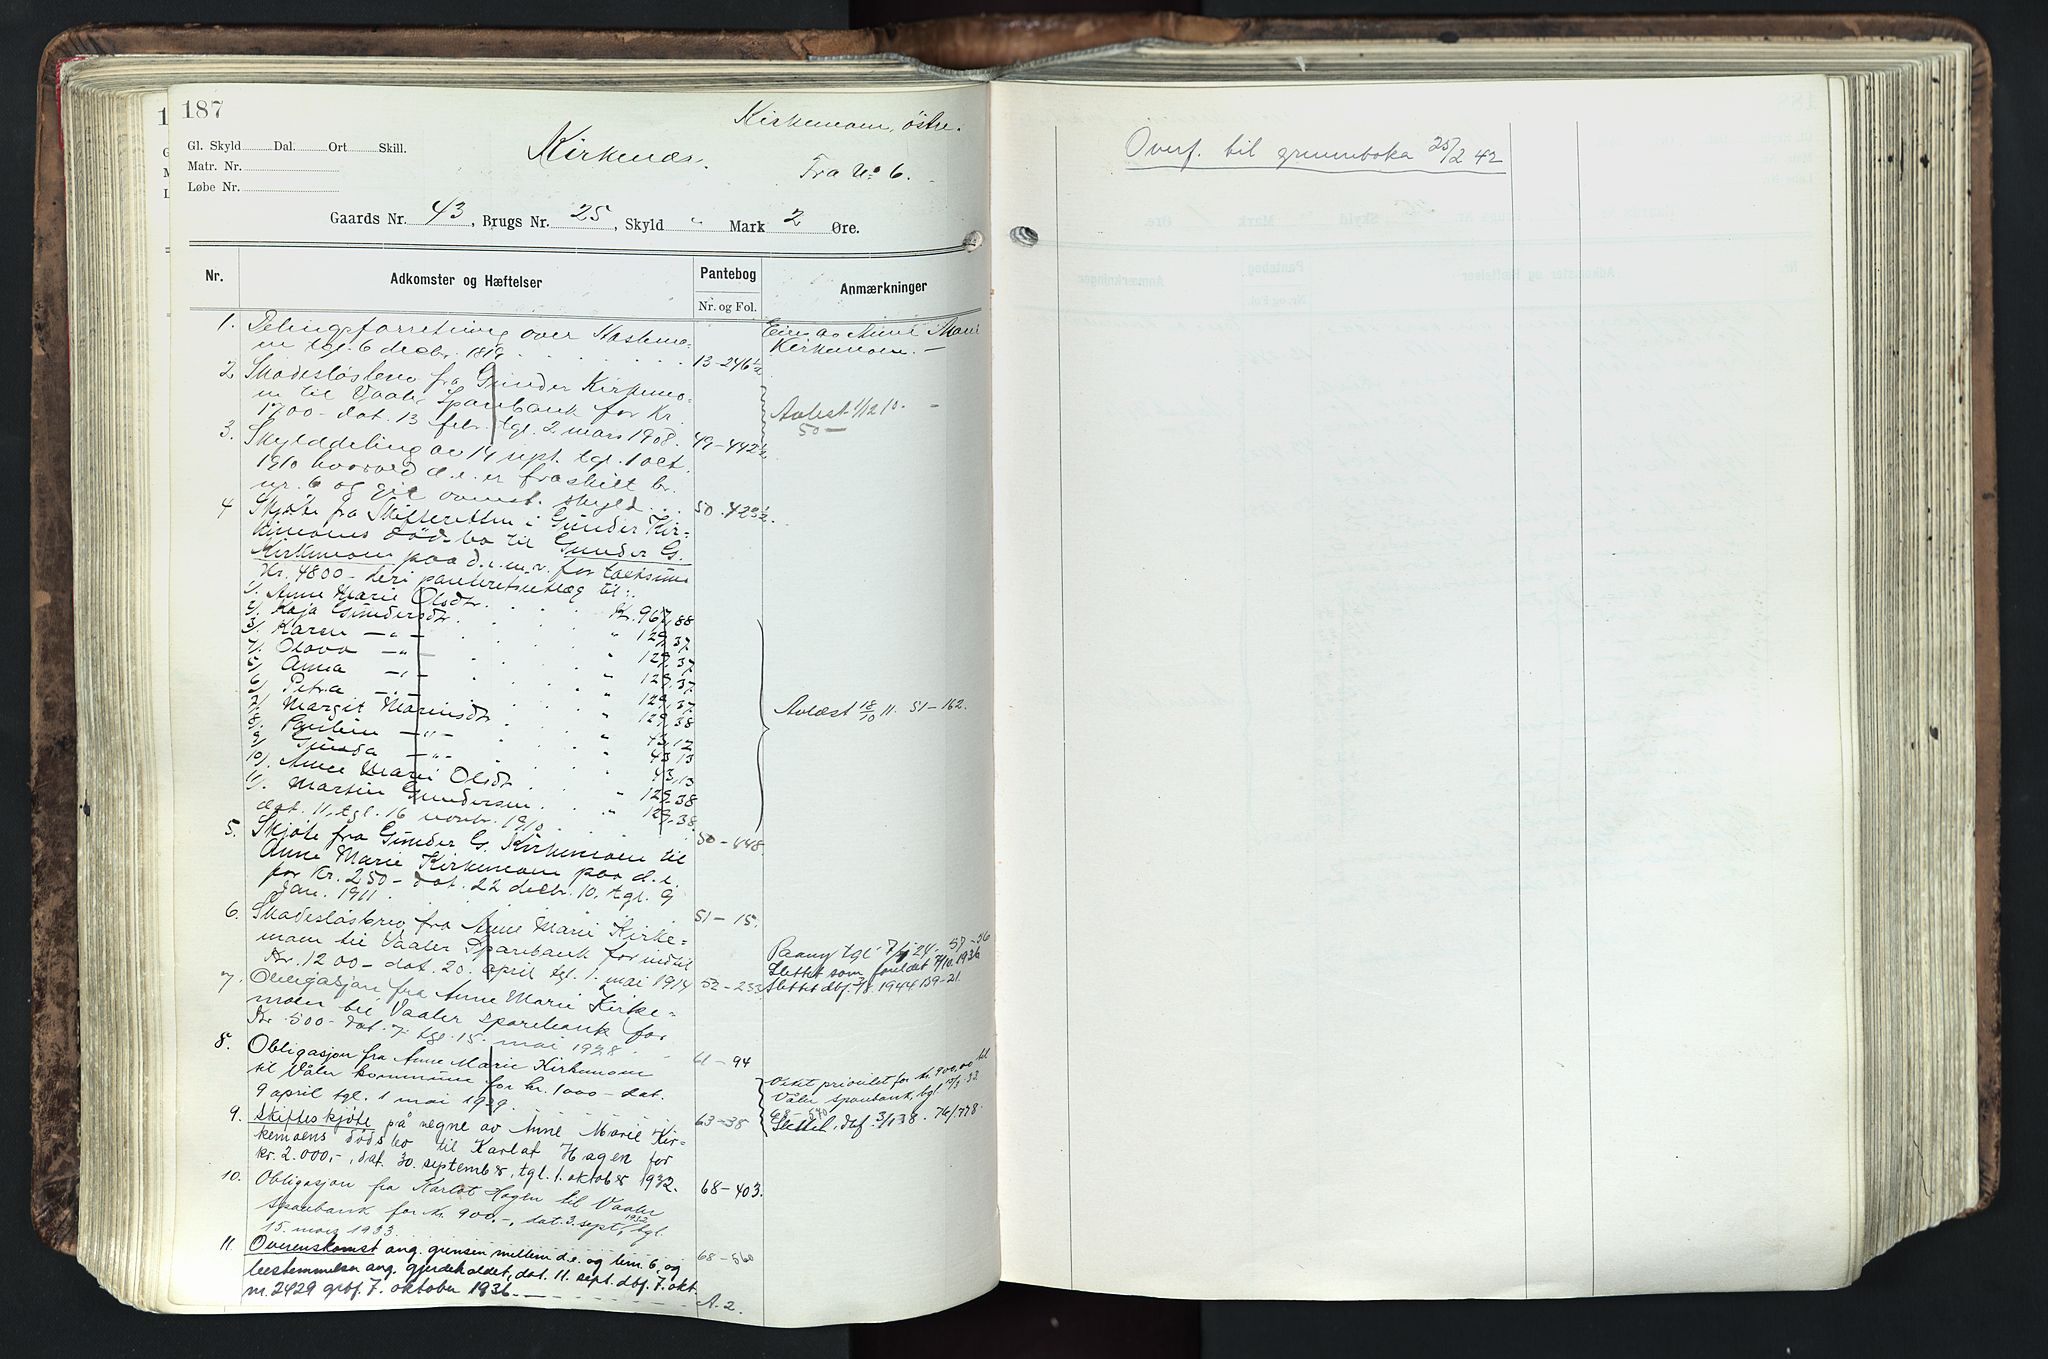 187
Kirkemoen, østre.
Gl. Skyld Dal. Ort Skill.
Matr. Nr.
Løbe Nr.
Kirkenæs.
Fra No 6.
Gaards Nr. 43, Brugs Nr. 25, Skyld " Mark 2 Øre.
Nr. Adkomster og Hæftelser Pantebog Anmærkninger
Nr. og Fol.
1. Delingsforretning over Haslemo-
en tgl. 6 decbr. 1819. 13-246½
Eies av Anne Marie
Kirkemoen. -
2 Skadesløsbrev fra Gunder Kirkemo-
en til Vaaler Sparebank for Kr.
1700- dat. 13 febr. tgl. 2 mars 1908. 49-442½
Avlæst 1/12 10. -
50 -
3. Skylddeling av 14 sept. tgl. 1 oct.
1910 hvorved d.e. er fraskilt br.
nr. 6 og git ovenst. skyld ... 50-423½
4 Skjøte fra Skifteretten i Gunder Kir-
kemoens dødsbo til Gunder G.
Kirkemoen paa d.e. m.v. for takstsum
Kr. 4800- deri panteretsutlæg til:
1/. Anne Marie Olsdt. Kr. 967,88
2/. Kaja Gundersdt. " 129,37
3/. Karen -"- " 129,37
4/. Olava -"- " 129,37
5/. Anna -"- " 129,37
6/. Petra -"- " 129,38
7/. Margit Marinsdt. " 43,12
8/. Pauline -"- " 43,13
9/. Gunda -"- " 43,13
10/. Anne Marie Olsdt. " 129,38
11/. Martin Gundersen " 129,38
dat. 11, tgl. 16 novbr. 1910. 50-448.
Avlæst 18/10 11. 51-162.
5. Skjøte fra Gunder G. Kirkemoen til
Anne Marie Kirkemoen paa d.e.
for Kr. 250- dat. 22 decbr. 10, tgl. 9
jan. 1911 51-15.
6. Skadesløsbrev fra Anne Marie Kirke-
moen til Vaaler Sparebank for indtil
Kr. 1200- dat. 20. april tgl. 1. mai 1914 52-233
Paany tgl. 24. 57-56
Slettet som foreldet 1936
Slettet dbf. 1944 139-21.
7. Obligasjon fra Anne Marie Kirke-
moen til Vaaler sparebank for
Kr. 500- dat. 7. tgl. 15. mai 1928 61-94
8. Obligasjon fra Anne Marie Kirkemoen
til Våler kommune for kr. 1000- dat.
9 april tgl. 1 mai 1929. 63-38
Veket prioritet for kr. 900,00 til
Våler sparebank, tgl. 15/3 33
68-540
Slettet, dbf. 3/1 38. 76/778.
9. Skifteskjøte på vegne av Anne Marie Kir-
kemoens dødsbo til Karlot Hagen for
kr. 2.000,-, dat. 30. september, tgl. 1. oktober 1932. 68-403.
10. Obligasjon fra Karlot Hagen til Vaaler
sparebank for kr. 900,-, dat. 3. sept. 1932, tgl.
15. mars 1933 68-560
11. Overenskomst ang. grensen mellem d.e. og br.nr. 6, og
bestemmelser ang. gjerdeholdet, dat. 11. sept. dbf. 7. okt.
nr. 2429 grbf. 7. oktober 1936 A. 2.
Overf. til grunnboka 25/2 42